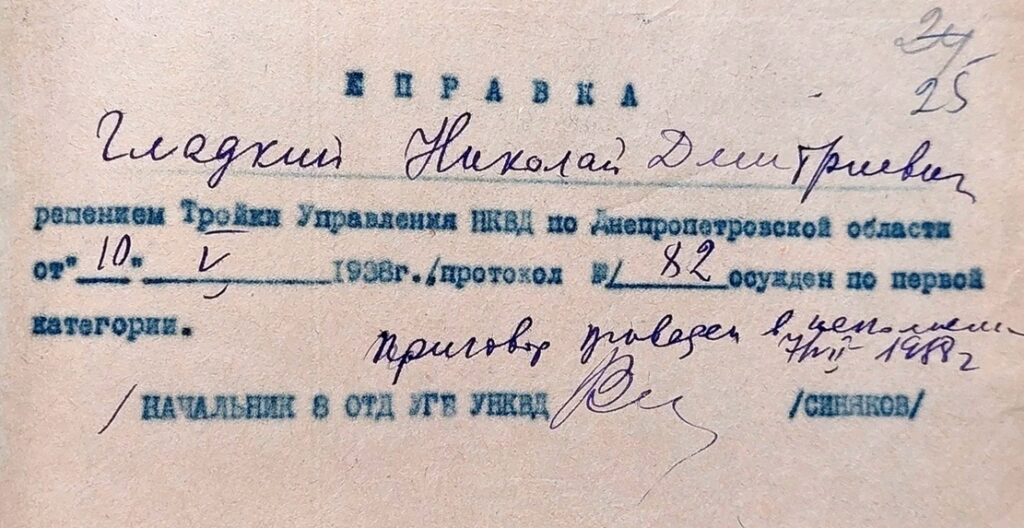 24
25
СПРАВКА
Гладкий Николай Дмитриевич
решением Тройки Управления НКВД по Днепропетровской области
от "10" V 1938г./протокол №/ 82 осужден по первой
категории.
Приговор приведен в исполнени
1938 г
/НАЧАЛЬНИК 8 ОТД УГБ УНКВД /СИНЯКОВ/